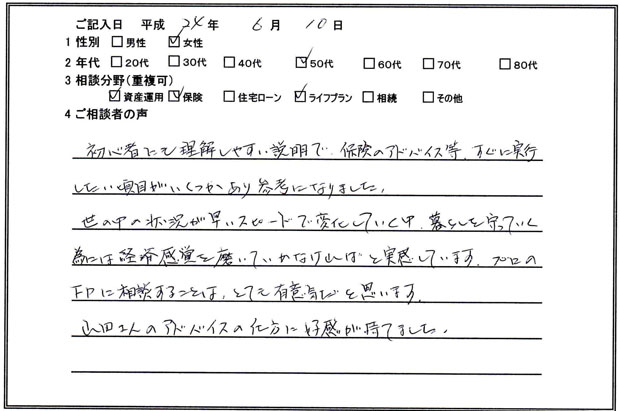 ご記入日 平成 24年 6月 10日
1 性別 □男性 ☑女性
2 年代 □20代 □30代 □40代 ☑50代 □60代 □70代 □80代
3 相談分野(重複可)
☑資産運用 ☑保険 □住宅ローン ☑ライフプラン □相続 □その他
4 ご相談者の声
初心者にも理解しやすい説明で、保険のアドバイス等、すぐに実行
したい項目がいくつかあり参考になりました。
世の中の状況が早いスピードで変化していく中、暮らしを守っていく
為には経済感覚を磨いていかなければと実感しています。プロの
FPに相談することは、とても有意義だと思います。
山田さんのアドバイスの仕方に好感が持てました。